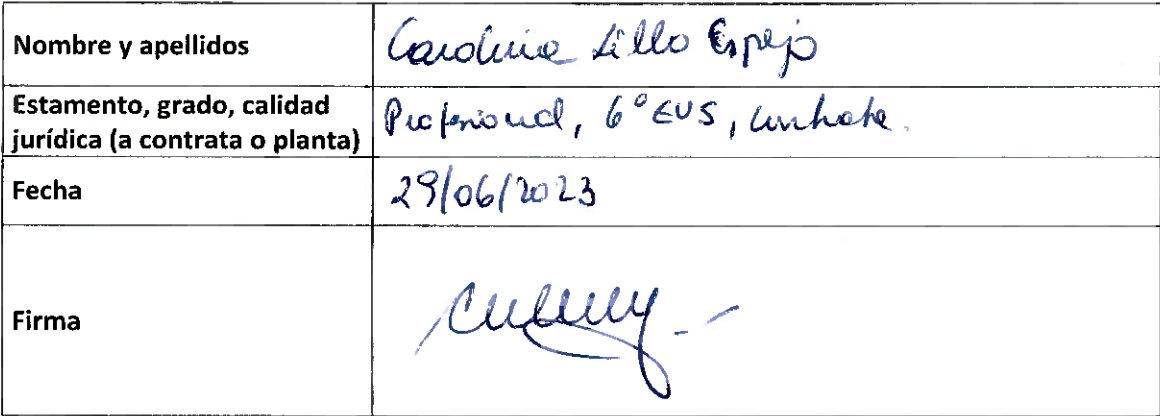 Nombre y apellidos
Carolina Lillo Espejo
Estamento, grado, calidad
jurídica (a contrata o planta)
Profesional, 6° EUS, contrata.
Fecha
29/06/2023
Firma